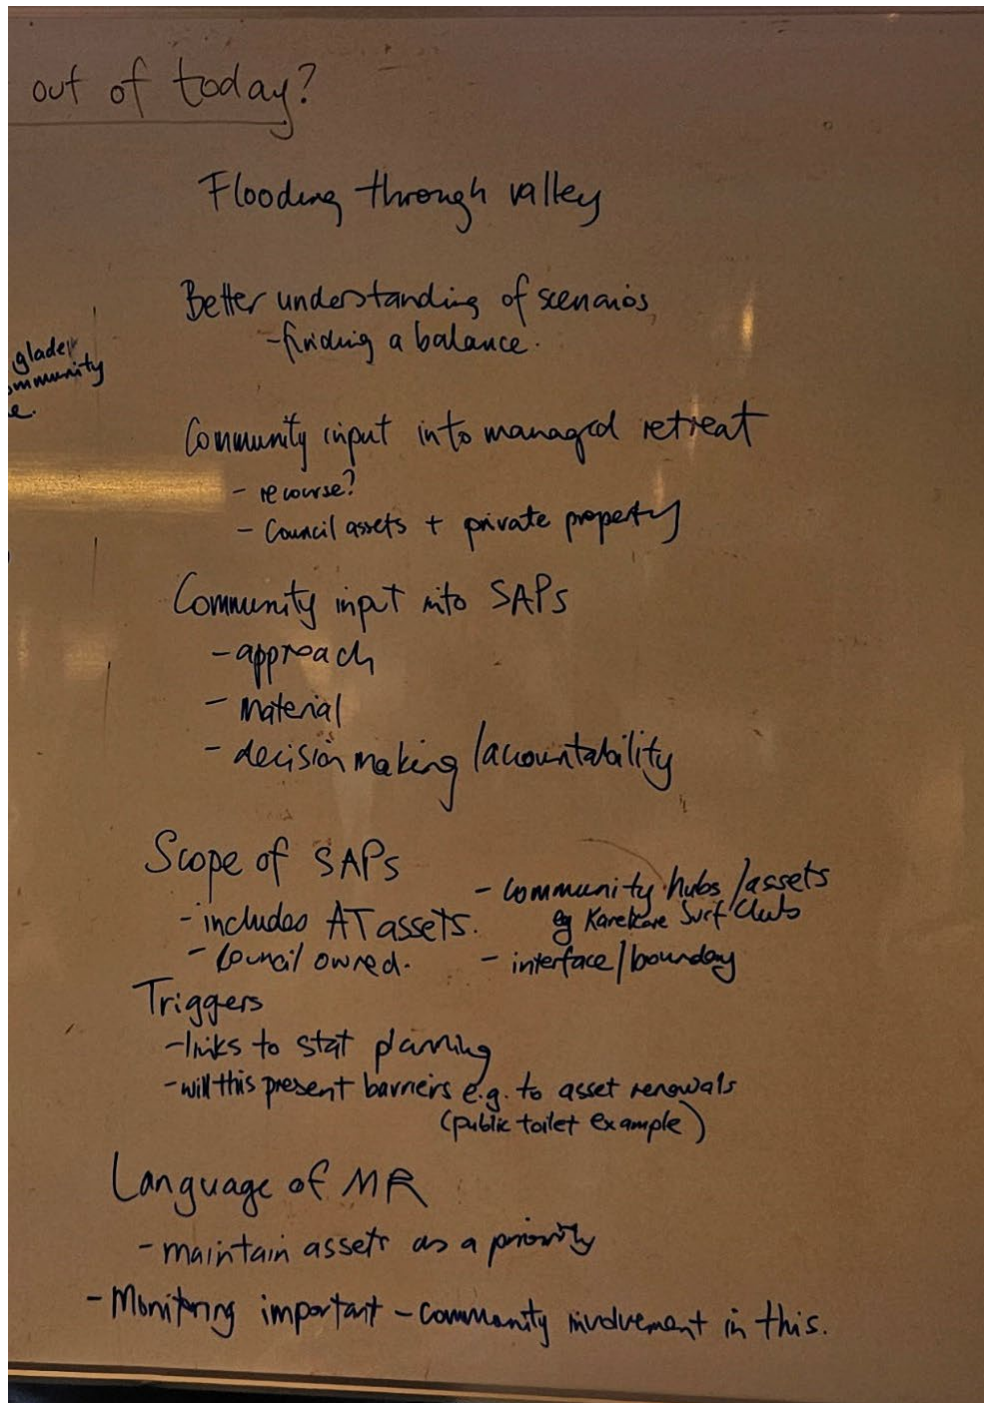 out of today?
Flooding through valley
Better understanding of scenarios
- finding a balance.
glade
ommunity
e.
Community input into managed retreat
- recourse?
- Council assets + private property
Community input into SAPs
- approach
- Material
- decision making / accountability
Scope of SAPs
- includes AT assets.
- Council owned.
- community hubs / assets
eg Karekare Surf Club
- interface / boundary
Triggers
- links to stat planning
- will this present barriers e.g. to asset renewals
(public toilet example)
Language of MR
- maintain assets as a priority
- Monitoring important - community involvement in this.